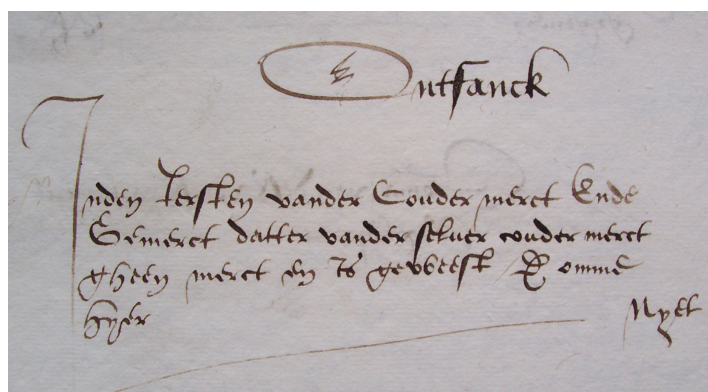 Ontfanck
Inden Iersten vander Couder merct Ende
Gemerct datter vander seluer couder merct
gheen merct en is geweest omme
hyer Nyet